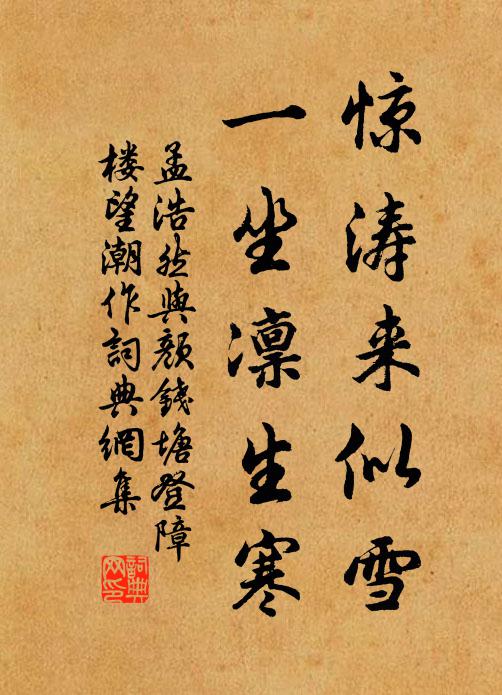 惊涛来似雪
一坐凛生寒
孟浩然與颜錢塘登障
楼望潮作詞典網集
詞典
网印